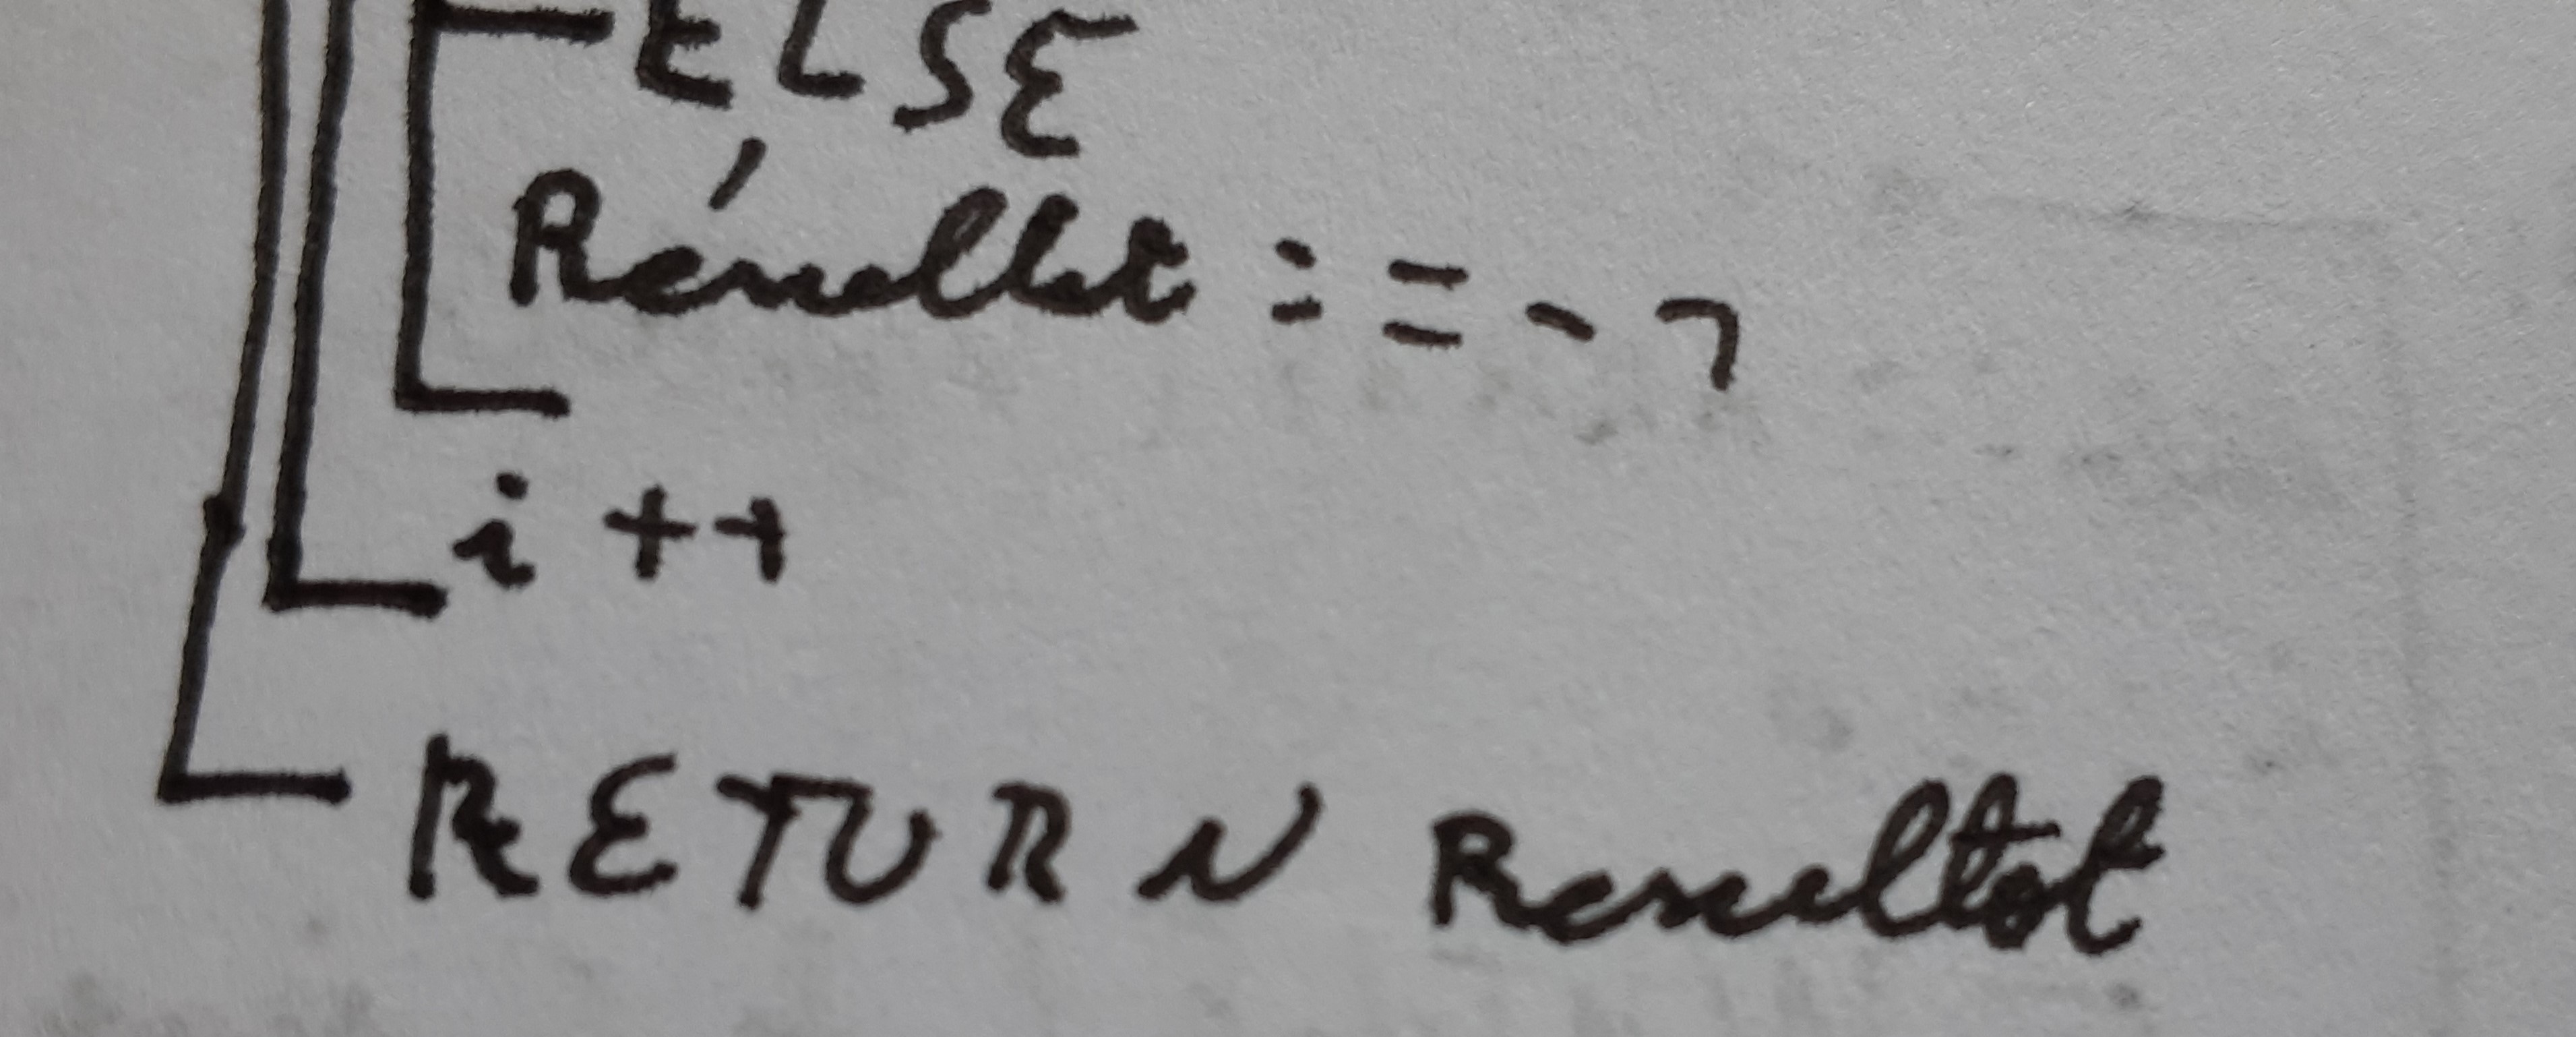 ELSE
Résultat := -1
i ++
RETURN Resultat